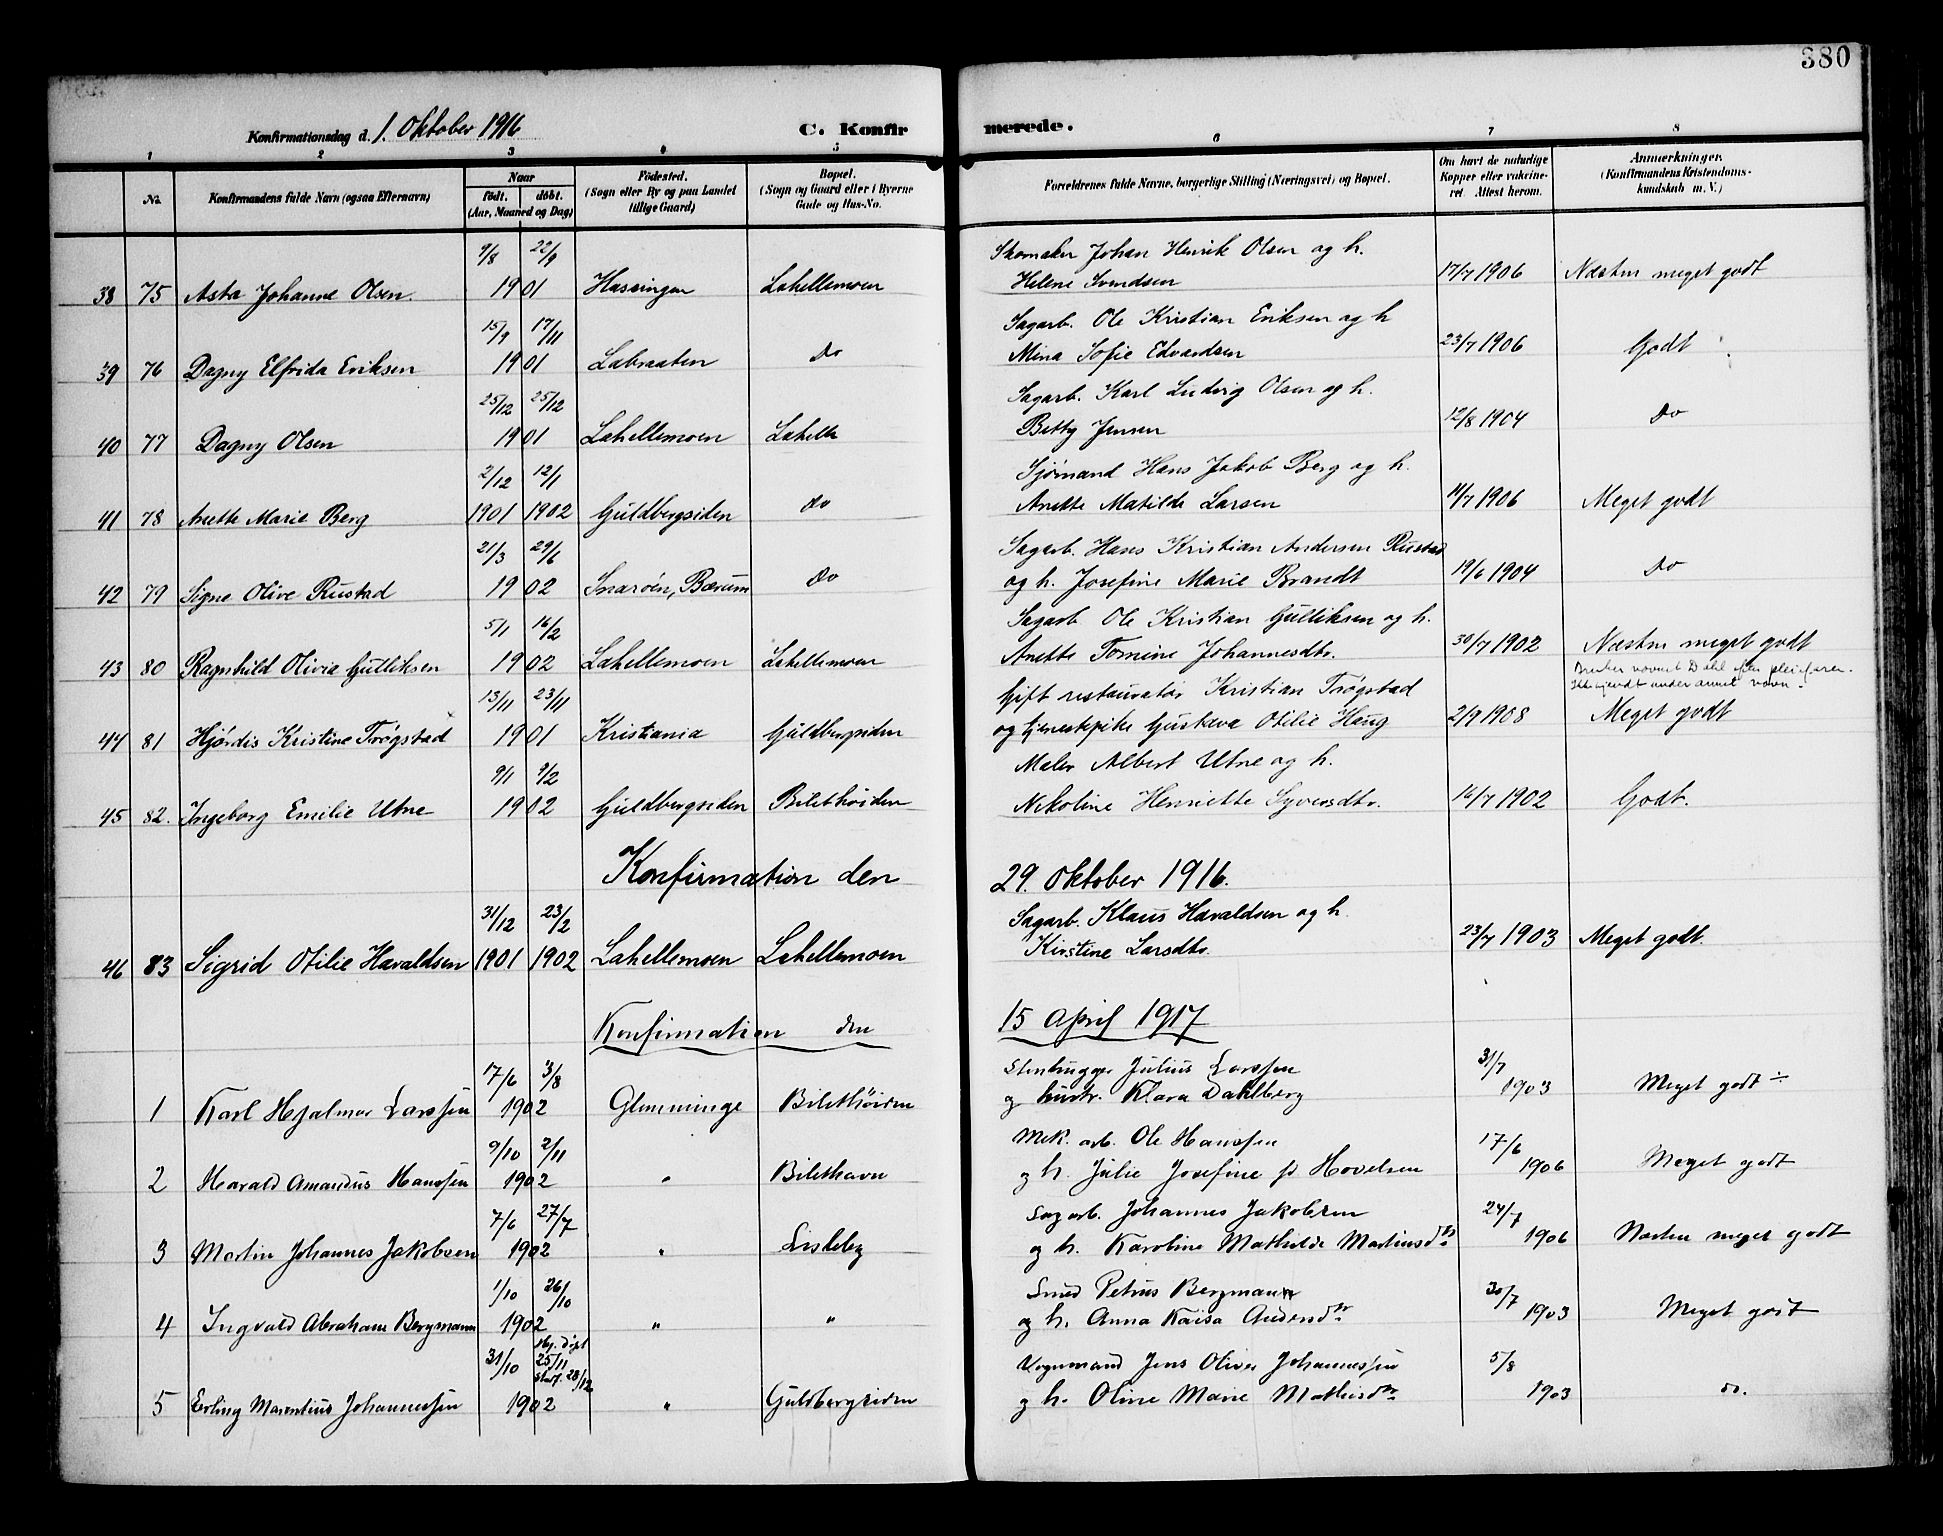 380
Konfirmationsdag d. 1. Oktober 1916 C. Konfirmerede.
1 2 3 4 5 6 7 8
No. Konfirmandens fulde Navn (ogsaa Efternavn) Naar født. døbt. (Aar, Maaned og Dag) Fødested. (Sogn eller By og paa Landet tillige Gaard) Bopæl. (Sogn og Gaard eller i Byerne Gade og Hus-No. Forældrenes fulde Navne, borgerlige Stilling (Næringsvei) og Bopæl. Om havt de naturlige Kopper eller vakcineret. Attest herom. Anmærkninger. (Konfirmandens Kristendomskundskab m. V.)
9/8 22/9 Skomaker Johan Henrik Olsen og h.
38 75 Asta Johanne Olsen. 1901 Hassingen Lahellemoen Helene Svendsen 17/7 1906 Næsten meget godt
15/9 17/11 Sagarb. Ole Kristian Eriksen og h
39 76 Dagny Elfrida Eriksen 1901 Labraaten Do Mina Sofie Edvardsen 23/7 1906 Godt
25/12 25/12 Sagarb. Karl Ludvig Olsen og h.
40 77 Dagny Olsen 1901 Lahellemoen Lahelle Betty Jensen 12/8 1904 Do
2/12 12/1 Sjømand Hans Jakob Berg og h.
41 78 Anette Marie Berg 1901 1902 Guldbergsiden Do Anette Matilde Larsen 14/7 1906 Meget godt
21/3 29/6 Sagarb. Hans Kristian Andersen Rustad
42 79 Signe Olive Rustad 1902 Snarøen, Bærum Do og h. Josefine Marie Brandt 19/6 1904 Do
5/1 16/2 Sagarb Ole Kristian Gulliksen og h.
43 80 Ragnhild Olivia Gulliksen 1902 Lahellemoen Lahellemoen Anette Tomine Johannesdtr. 30/7 1902 Næsten meget godt
Bruker navnet Dahl efter pleiefaren.
Ikke kjendt under annet navn.
13/11 23/11 Gift restauratør Kristian Trøgstad
44 81 Hjørdis Kristine Trøgstad 1901 Kristiania Guldbergsiden og tjenestepike Gustava Otilie Haug 2/9 1908 Meget godt
9/1 9/2 Maler Albert Utne og h.
45 82. Ingeborg Emilie Utne 1902 Guldbergsiden Bilethøiden Nikoline Henriette Syversdtr. 16/7 1902 Godt.
Konfirmation den 29. Oktober 1916.
31/12 23/2 Sagarb. Klaus Havaldsen og h.
46 83 Sigrid Otilie Havaldsen 1901 1902 Lahellemoen Lahellemoen Kirstine Larsdtr. 23/7 1903 Meget godt.
Konfirmation den 15 April 1917
17/6 3/8 Stenhugger Julius Larssen 31/7
1 Karl Hjalmar Larssen 1902 Glemminge Bilethøiden og hustr. Klara Dahlberg 1903 Meget godt ÷
9/10 2/11 Mek. arb. Ole Hanssen 17/6
2 Harald Amandus Hanssen 1902 " Bilethavn og h. Julie Josefine f. Hovelsen 1906 Meget godt
7/6 27/7 Sag arb. Johannes Jakobsen 24/7
3 Martin Johannes Jakobsen 1902 " Lisleby og h. Karoline Mathilde Martinsdtr 1906 Næsten meget godt
1/10 26/10 Smed Petrus Bergmann 30/7
4 Ingvald Abraham Bergmann 1902 " " og h. Anna Kaisa Andersdtr 1903 Meget godt
31/10 Hj. døpt 25/11 Stadf. 28/12 Vognmand Jens Oliver Johannessen 5/8
5 Erling Marentius Johannessen 1902 " Guldbergsiden og h. Oline Marie Mathisdtr 1903 do.